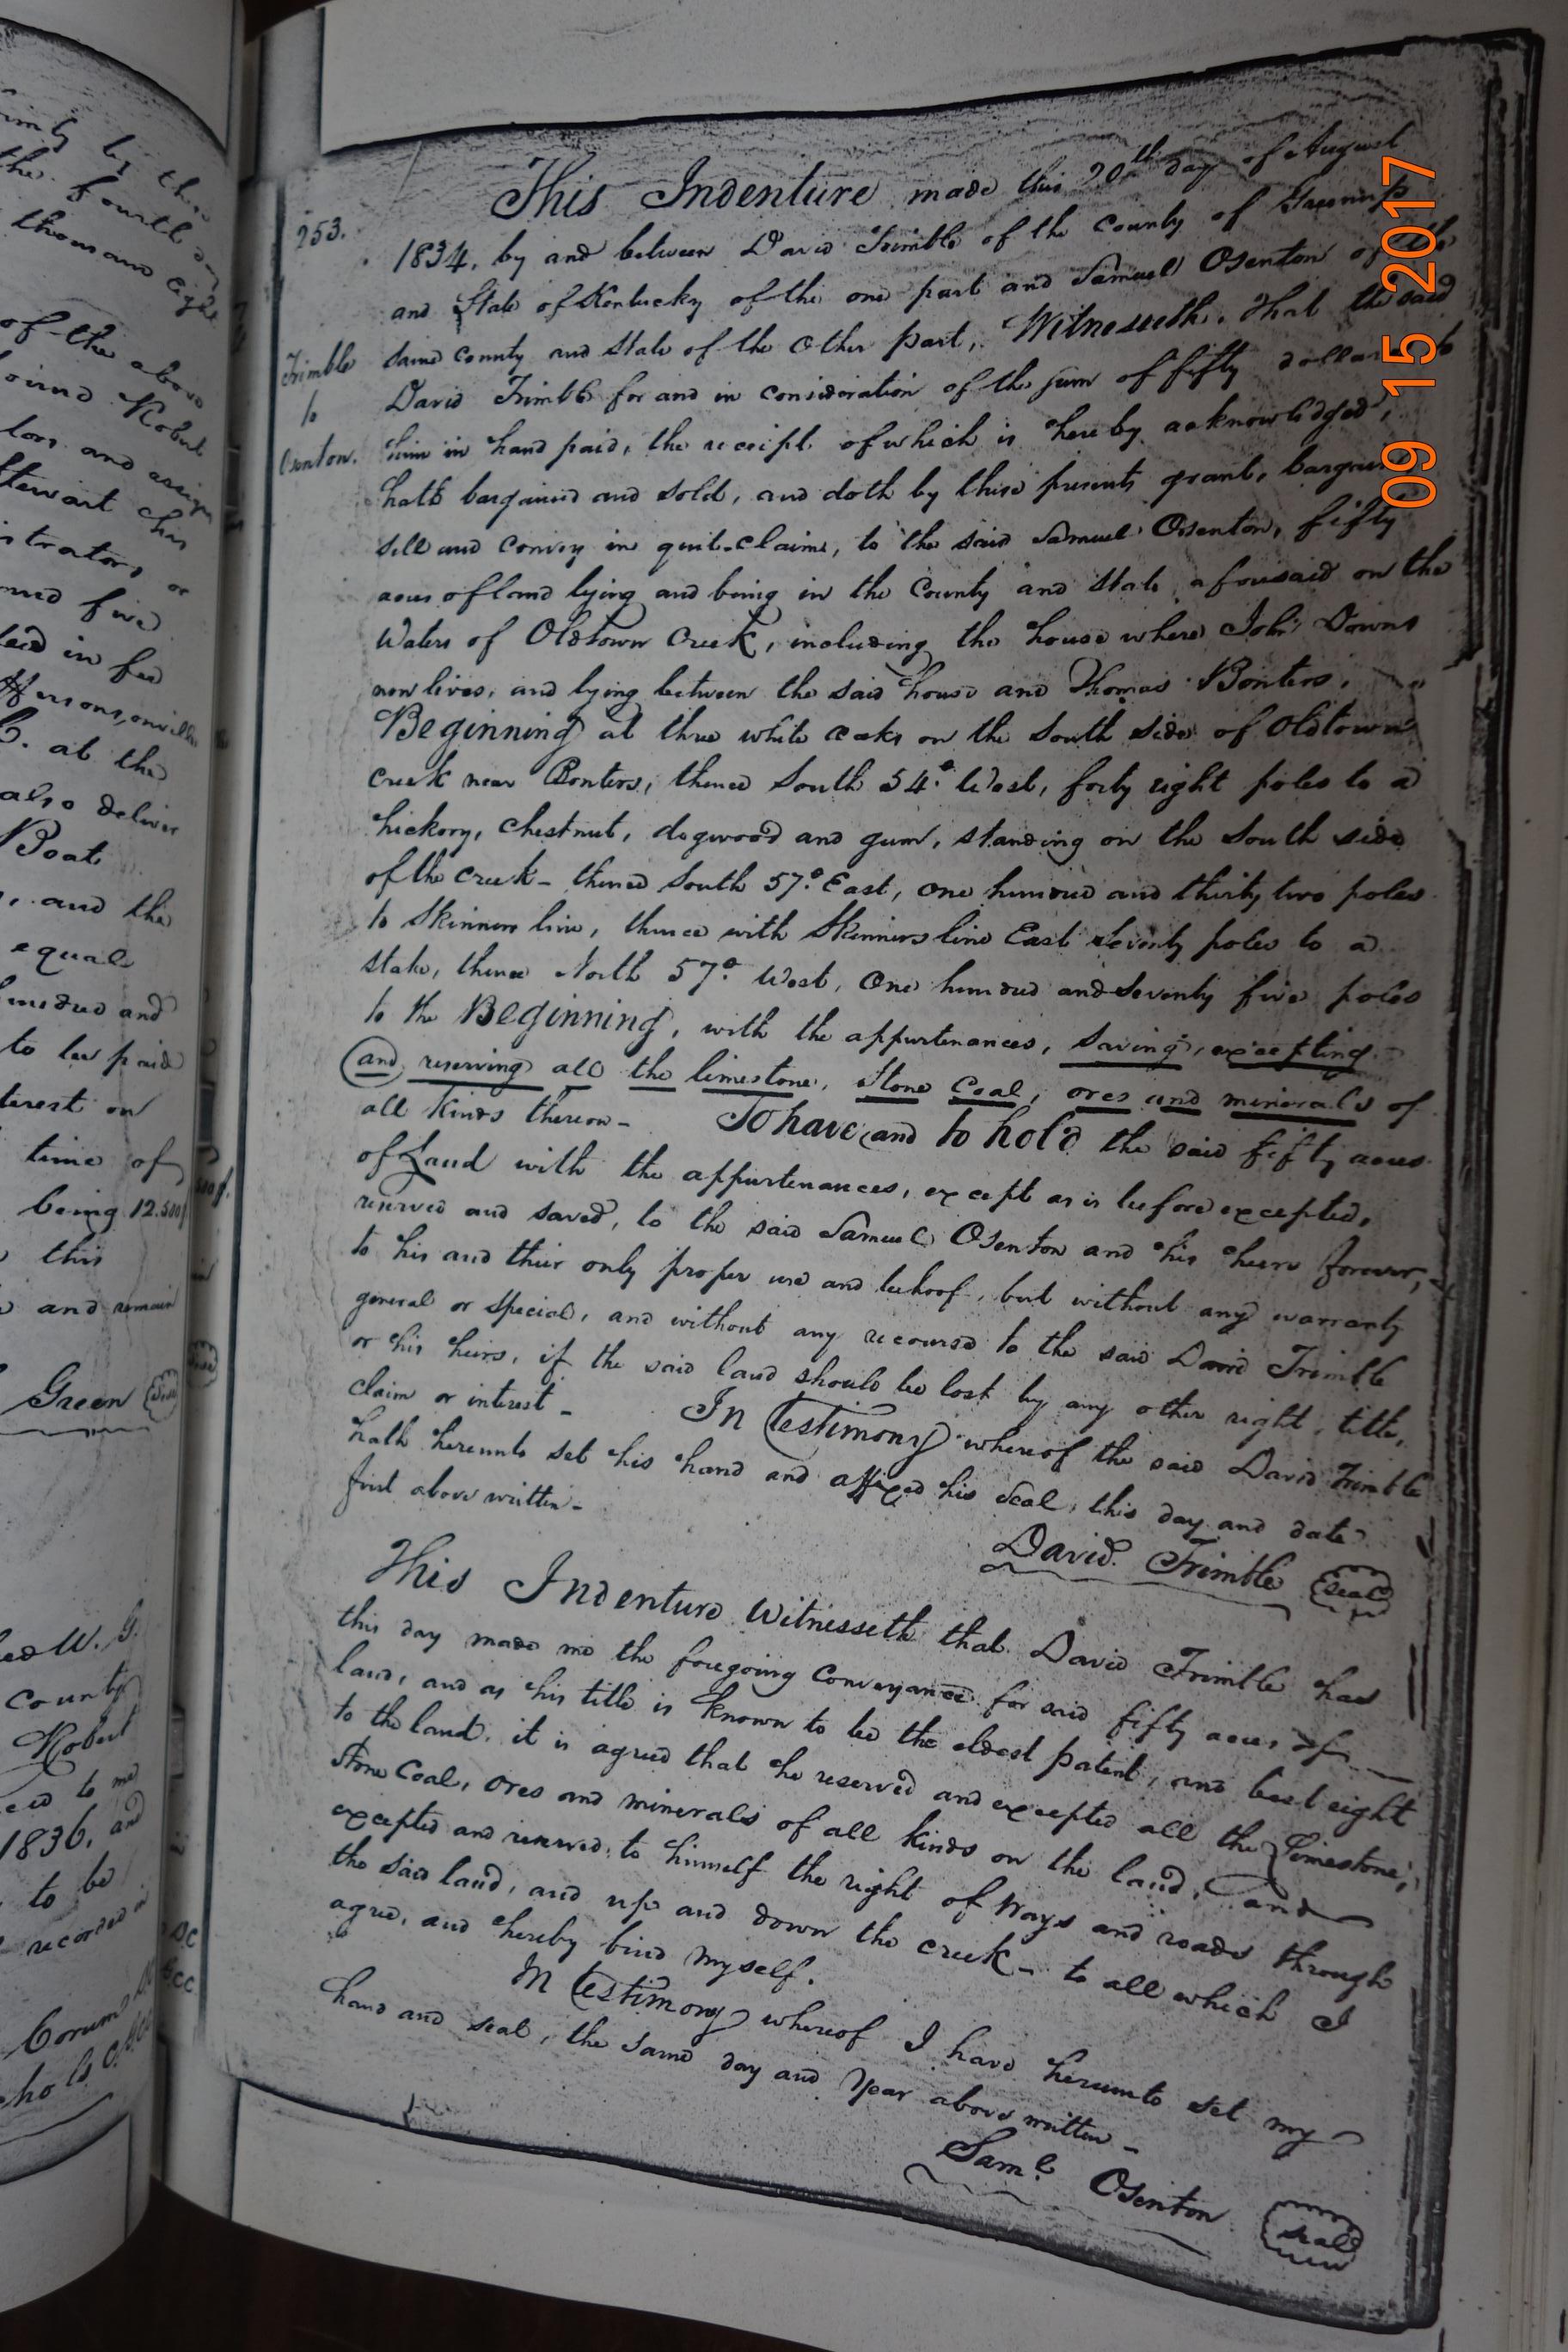 253.
Trimble
to
Osenton.
This Indenture made this 20th day of August
1834, by and between David Trimble of the County of Greenup
and State of Kentucky of the one part and Samuel Osenton of the
same county and state of the other part, Witnesseth, that the said
David Trimble for and in consideration of the sum of fifty dollars to
him in hand paid, the receipt of which is hereby acknowledged,
hath bargained and sold, and doth by these presents grant, bargain
sell and convey in quit-claim, to the said Samuel Osenton, fifty
acres of land lying and being in the County and State aforesaid on the
Waters of Oldtown Creek, including the house where John Downs
now lives, and lying between the said house and Thomas Bonters,
Beginning at three white oaks on the South side of Oldtown
creek near Bonters, thence South 54° West, forty eight poles to a
hickory, chestnut, dogwood and gum, standing on the South side
of the creek - thence South 57° East, one hundred and thirty two poles
to Skinners line, thence with Skinners line East seventy poles to a
stake, thence North 57° West, One hundred and seventy five poles
to the Beginning, with the appurtenances, saving, excepting
and reserving all the limestone, Stone Coal, ores and minerals of
all kinds thereon - To have and to hold the said fifty acres
of Land with the appurtenances, except as is before excepted,
reserved and saved, to the said Samuel Osenton and his heirs forever,
to his and their only proper use and behoof, but without any warranty
general or special, and without any recourse to the said David Trimble
or his heirs, if the said land should be lost by any other right, title,
claim or interest - In Testimony whereof the said David Trimble
hath hereunto set his hand and affixed his seal, this day and date
first above written -
David Trimble seal
This Indenture Witnesseth that David Trimble has
this day made me the foregoing Conveyance for said fifty acres of
land, and as his title is known to be the eldest patent, and best right
to the land, it is agreed that he reserved and excepted all the Limestone,
Stone Coal, ores and minerals of all kinds on the land, and
excepted and reserved to himself the right of Ways and roads through
the said land, and up and down the creek - to all which I
agree, and hereby bind myself.
In Testimony whereof I have hereunto set my
hand and seal, the same day and Year above written -
Saml Osenton seal
09 15 2017
the fourth day
thousand eight
of the above
Robert
and assign
or
five
in fee
at the
also deliver
Boat
and the
equal
and
to be paid
interest on
time of
being 12.500
this
and remain
Green
W. G.
County
Robert
to me
1836, and
to be
recorded in